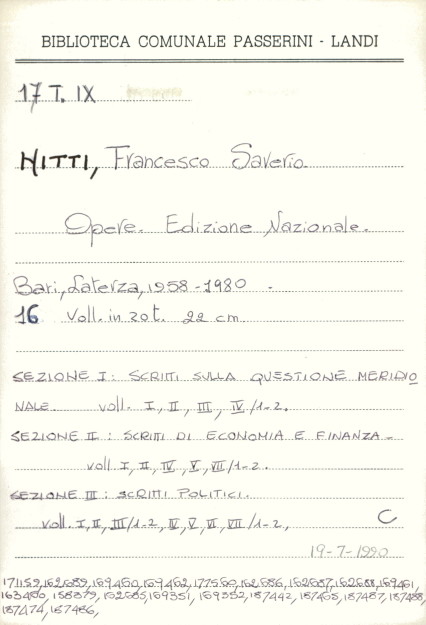 BIBLIOTECA COMUNALE PASSERINI - LANDI
17 T. IX
NITTI, Francesco Saverio.
Opere. Edizione Nazionale.
Bari, Laterza, 1958-1980 -
16 Voll. in 20 t. 22 cm
SEZIONE I: SCRITTI SULLA QUESTIONE MERIDIO
NALE. voll. I, II, III, IV/1-2.
SEZIONE II: SCRITTI DI ECONOMIA E FINANZA.-
voll. I, II, IV, V, VII/1-2.
SEZIONE III: SCRITTI POLITICI.
voll. I, II, III/1-2, IV, V, VI, VII/1-2, C
19-7-1990
171159, 162689, 169460, 169462, 177560, 162686, 162687, 162688, 169461,
163400, 158379, 162685, 169351, 169352, 187442, 187405, 187487, 187488,
187474, 187486,